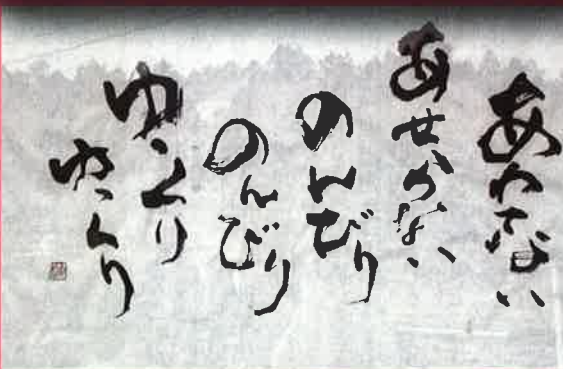 あわてない
あせらない
のんびり
のんびり
ゆっくり
ゆっくり